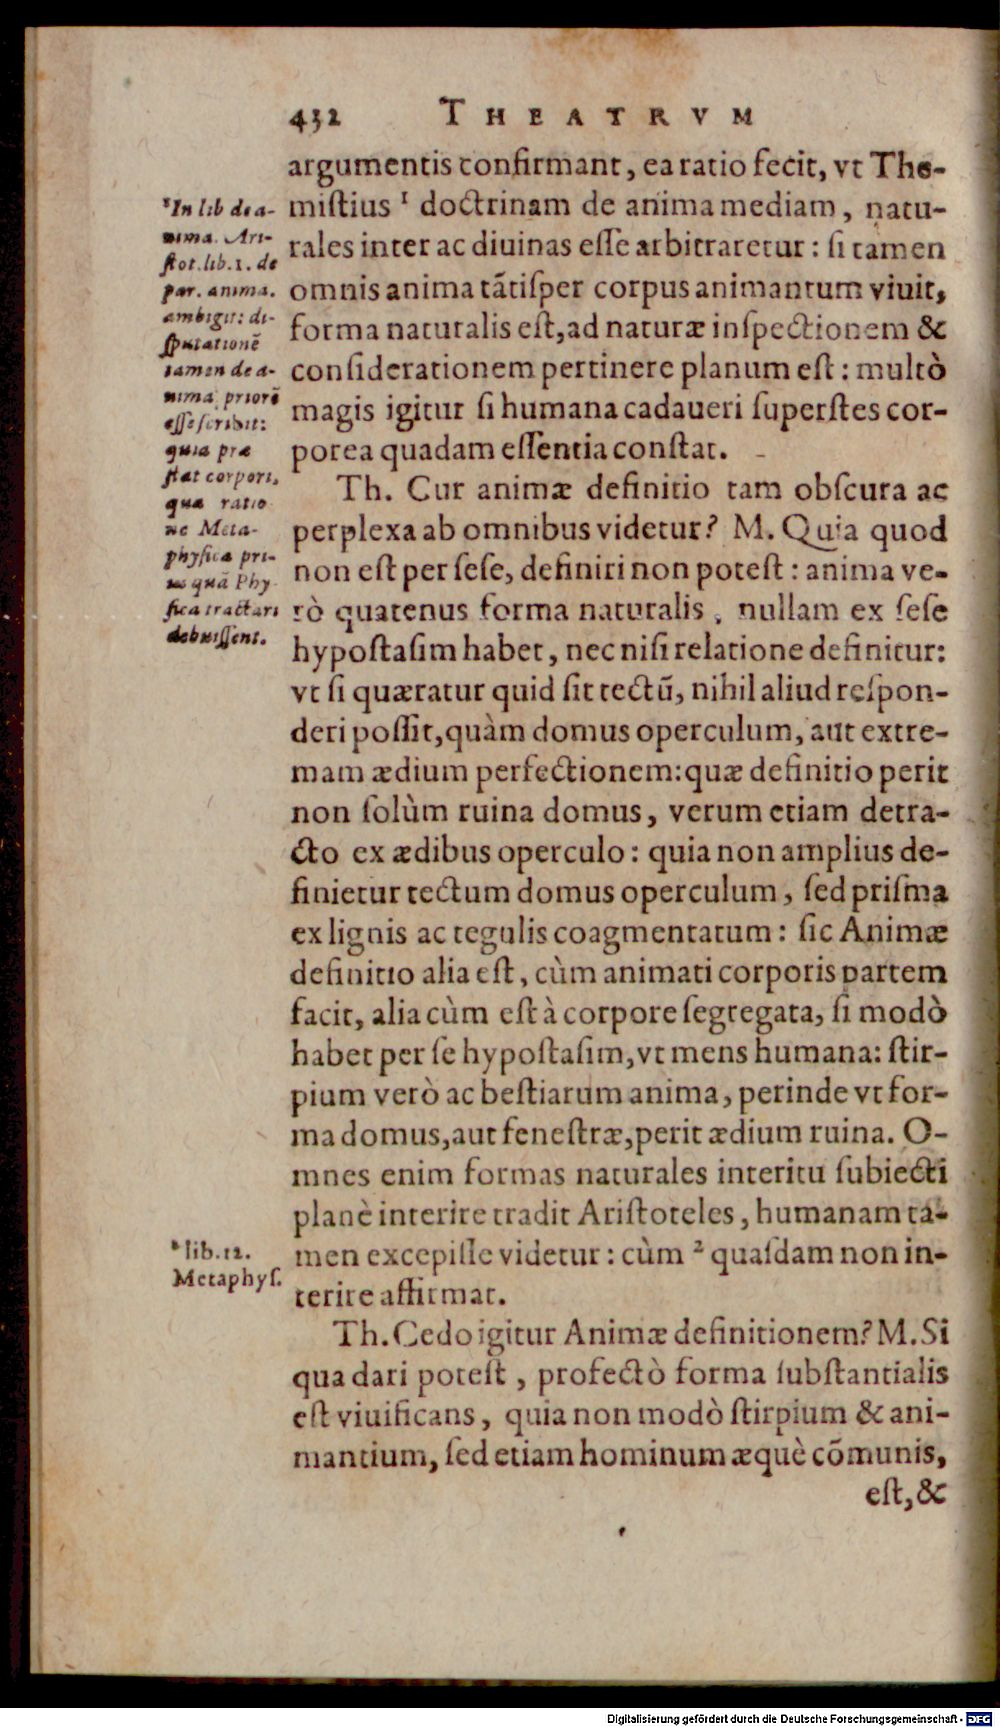 432 THEATRVM
argumentis confirmant, ea ratio fecit, vt The-
miſtius ¹ doctrinam de anima mediam, natu-
rales inter ac diuinas eſſe arbitraretur: ſi tamen
omnis anima tãtiſper corpus animantum viuit,
forma naturalis eſt, ad naturæ inſpectionem &
conſiderationem pertinere planum eſt: multò
magis igitur ſi humana cadaueri ſuperſtes cor-
porea quadam eſſentia conſtat.
Th. Cur animæ definitio tam obſcura ac
perplexa ab omnibus videtur? M. Quia quod
non eſt per ſeſe, definiri non poteſt: anima ve-
rò quatenus forma naturalis, nullam ex ſeſe
hypoſtaſim habet, nec niſi relatione definitur:
vt ſi quæratur quid ſit tectũ, nihil aliud reſpon-
deri poſſit, quàm domus operculum, aut extre-
mam ædium perfectionem: quæ definitio perit
non ſolùm ruina domus, verum etiam detra-
cto ex ædibus operculo: quia non amplius de-
finietur tectum domus operculum, ſed priſma
ex lignis ac tegulis coagmentatum: ſic Animæ
definitio alia eſt, cùm animati corporis partem
facit, alia cùm eſt à corpore ſegregata, ſi modò
habet per ſe hypoſtaſim, vt mens humana: ſtir-
pium verò ac beſtiarum anima, perinde vt for-
ma domus, aut feneſtræ, perit ædium ruina. O-
mnes enim formas naturales interitu ſubiecti
planè interire tradit Ariſtoteles, humanam ta-
men excepiſſe videtur: cùm ² quaſdam non in-
terire affirmat.
Th. Cedo igitur Animæ definitionem? M. Si
qua dari poteſt, profectò forma ſubſtantialis
eſt viuificans, quia non modò ſtirpium & ani-
mantium, ſed etiam hominum æquè cõmunis,
eſt, &
¹In lib de a-
nima. Ari-
ſtot. lib. 1. de
par. anima.
ambigit: di-
ſputationẽ
tamen de a-
nima priorẽ
eſſe ſcribit:
quia præ
ſtat corpori,
qua ratio
ne Meta-
phyſica pri-
us quã Phy
ſica tractari
debuiſſent.
²lib. 12.
Metaphyſ.
Digitalisierung gefördert durch die Deutsche Forschungsgemeinschaft - DFG